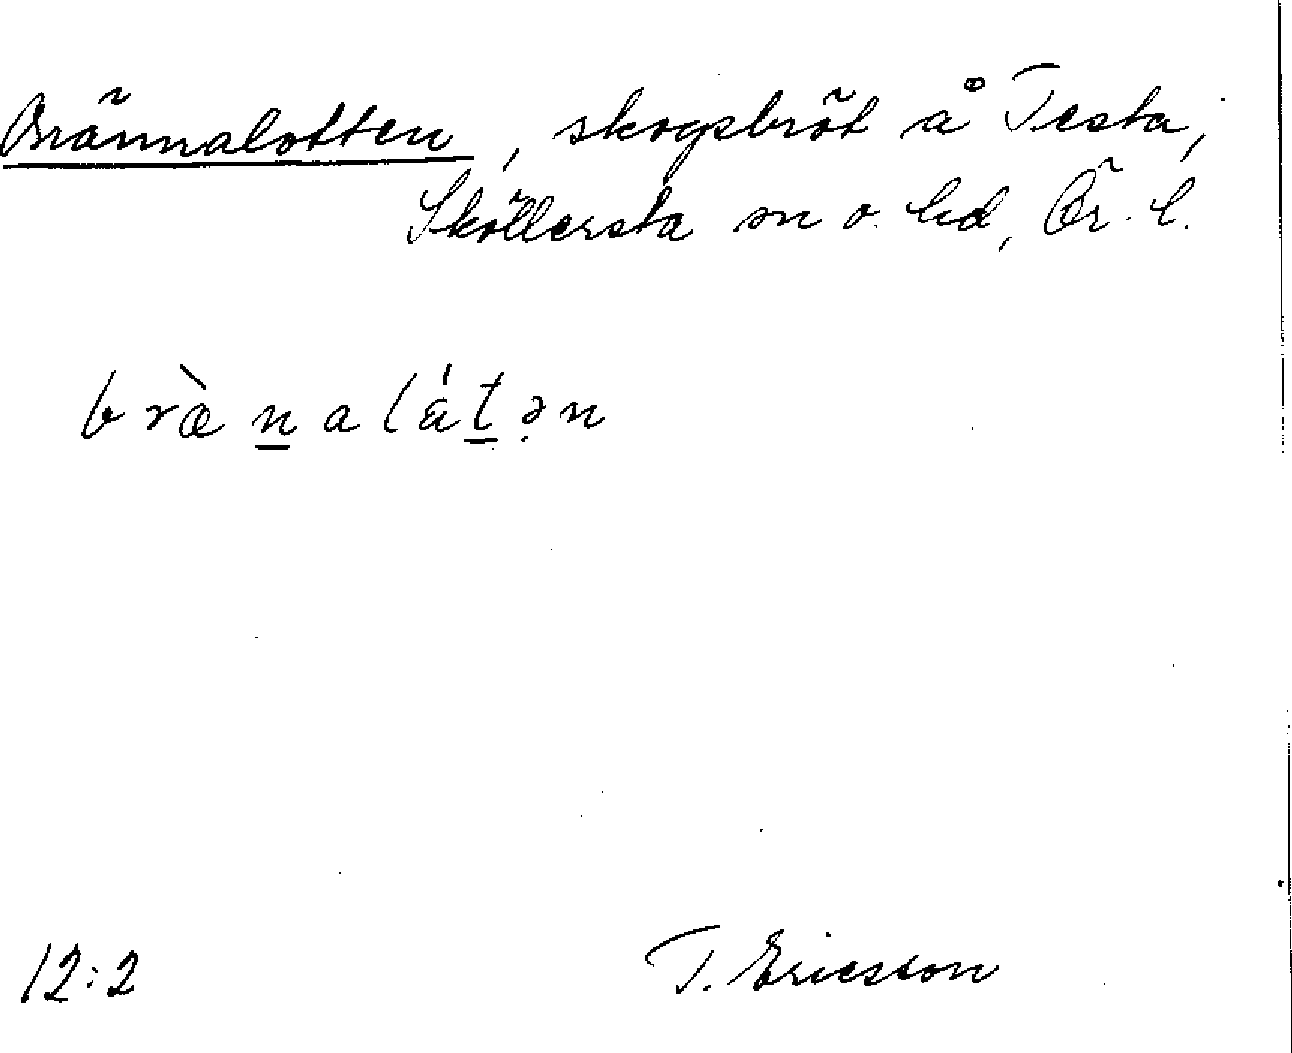 Brännalotten, skogsbröt å Testa,
Sköllersta sn o. hd, Ör. l.
bræ̀n̲alát̲ən
12:2 T. Ericsson